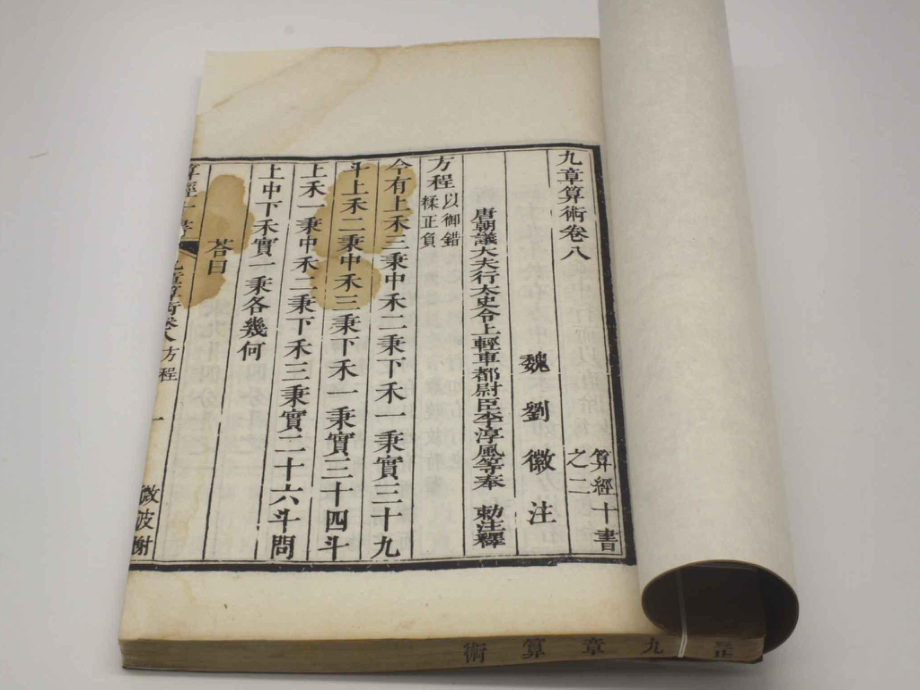 九章算術卷八
算經十書之二
魏劉徽注
唐朝議大夫行太史令上輕車都尉臣李淳風等奉 勅注釋
方程以御錯糅正負
今有上禾三秉中禾二秉下禾一秉實三十九
斗上禾二秉中禾三秉下禾一秉實三十四斗
上禾一秉中禾二秉下禾三秉實二十六斗問
上中下禾實一秉各幾何
荅曰
算經十書
九章算術卷八方程 一
微波榭
九章算術